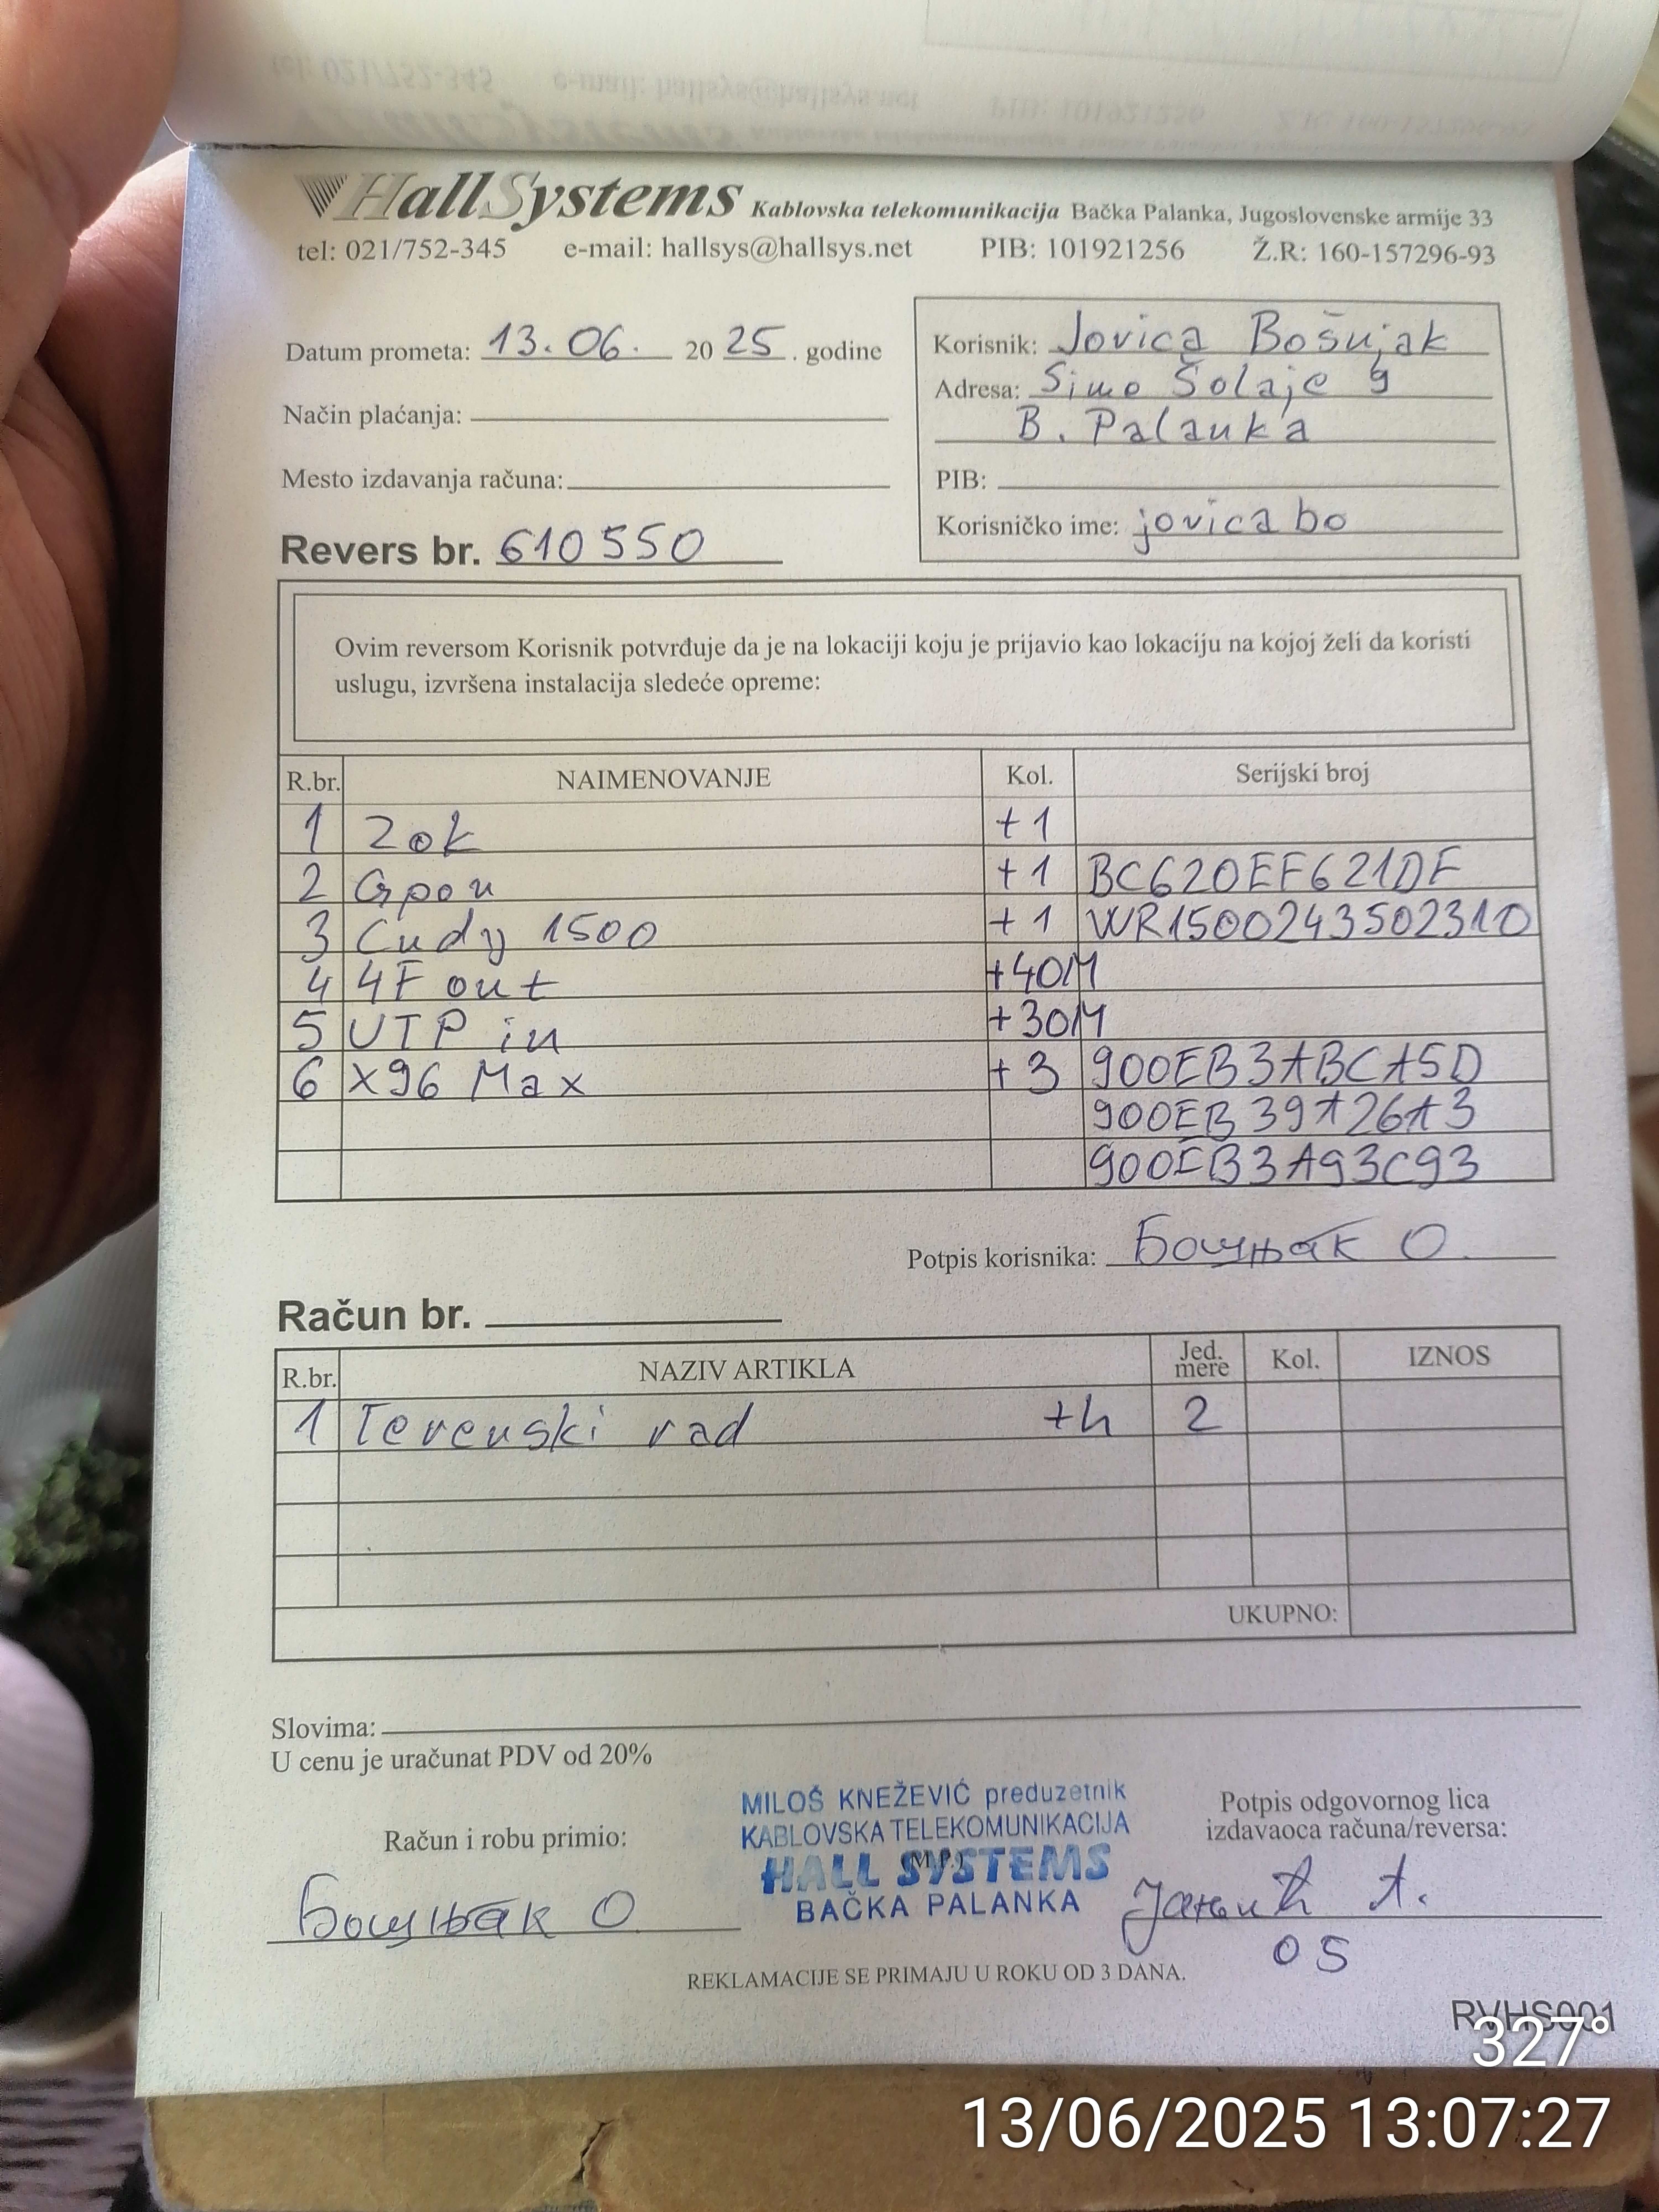 HallSystems Kablovska telekomunikacija Bačka Palanka, Jugoslovenske armije 33
tel: 021/752-345 e-mail: hallsys@hallsys.net PIB: 101921256 Ž.R: 160-157296-93
Datum prometa: 13.06. 2025. godine
Način plaćanja:
Mesto izdavanja računa:
Revers br. 610550
Korisnik: Jovica Bošnjak
Adresa: Sime Šolaje 9
B. Palanka
PIB:
Korisničko ime: jovicabo
Ovim reversom Korisnik potvrđuje da je na lokaciji koju je prijavio kao lokaciju na kojoj želi da koristi
uslugu, izvršena instalacija sledeće opreme:
R.br. NAIMENOVANJE Kol. Serijski broj
1 Zok +1
2 Gpon +1 BC620EF621DF
3 Cudy 1500 +1 WR1500243502310
4 4F out +40M
5 UTP in +30M
6 X96 Max +3 900EB3ABCA5D
900EB39A26A3
900EB3A93C93
Potpis korisnika: Бошњак О
Račun br.
R.br. NAZIV ARTIKLA Jed. mere Kol. IZNOS
1 Terenski rad +h 2
UKUPNO:
Slovima:
U cenu je uračunat PDV od 20%
Račun i robu primio:
Бошњак О
MILOŠ KNEŽEVIĆ preduzetnik
KABLOVSKA TELEKOMUNIKACIJA
(M.P.)
HALL SYSTEMS
BAČKA PALANKA
Potpis odgovornog lica
izdavaoca računa/reversa:
A.
05
REKLAMACIJE SE PRIMAJU U ROKU OD 3 DANA.
RVHS001
327°
13/06/2025 13:07:27